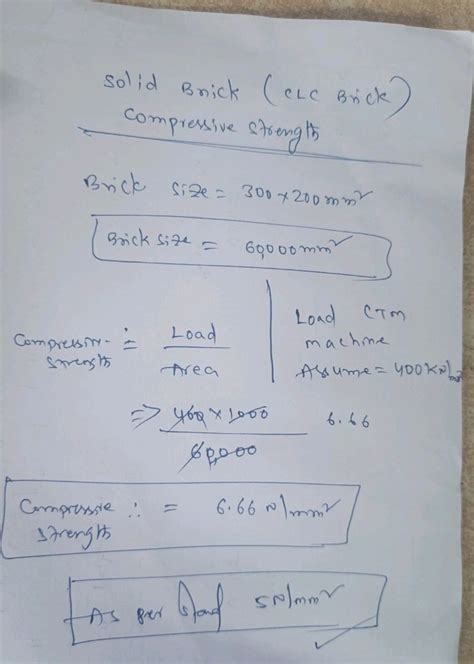 Solid Brick (CLC Brick)
Compressive Strength
Brick size = 300 x 200 mm²
Brick size = 60,000 mm²
Compressive Strength ∴ = Load / Area
Load CTM
machine
Assume = 400 KN/mm²
=> 400 x 1000 / 60,000 6.66
Compressive Strength ∴ = 6.66 N/mm²
As per 5 N/mm²